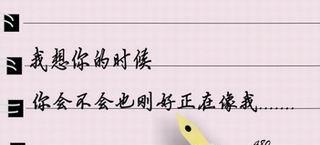 我想你的时候
你会不会也刚好正在像我.......